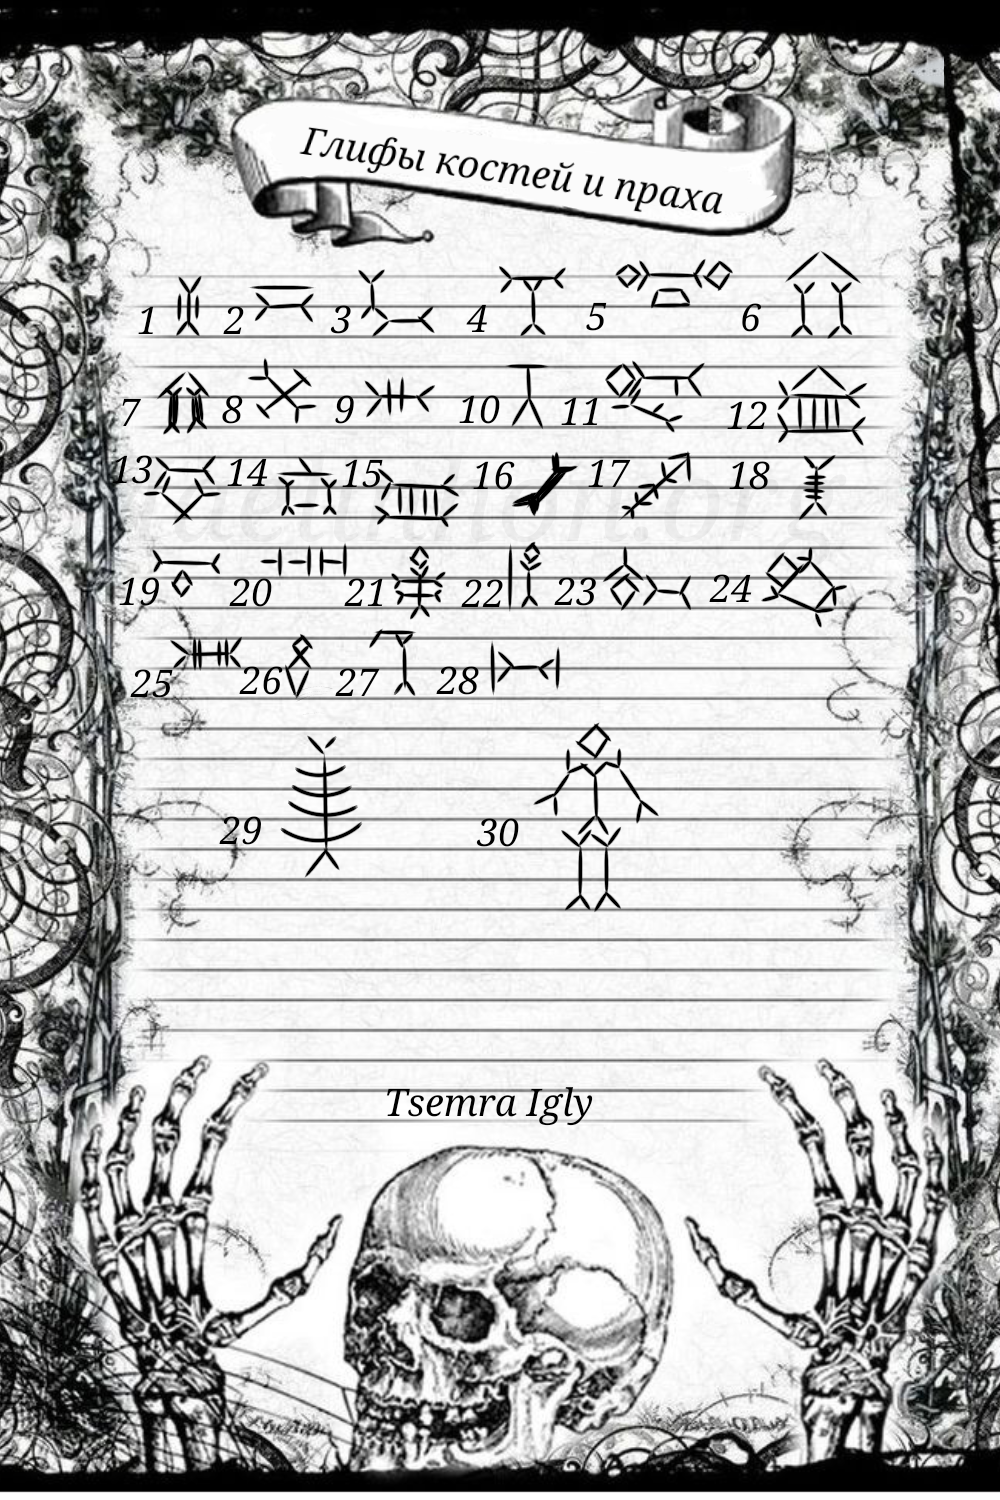 Глифы костей и праха
1 2 3 4 5 6
7 8 9 10 11 12
13 14 15 16 17 18
19 20 21 22 23 24
25 26 27 28
29 30
Tsemra Igly